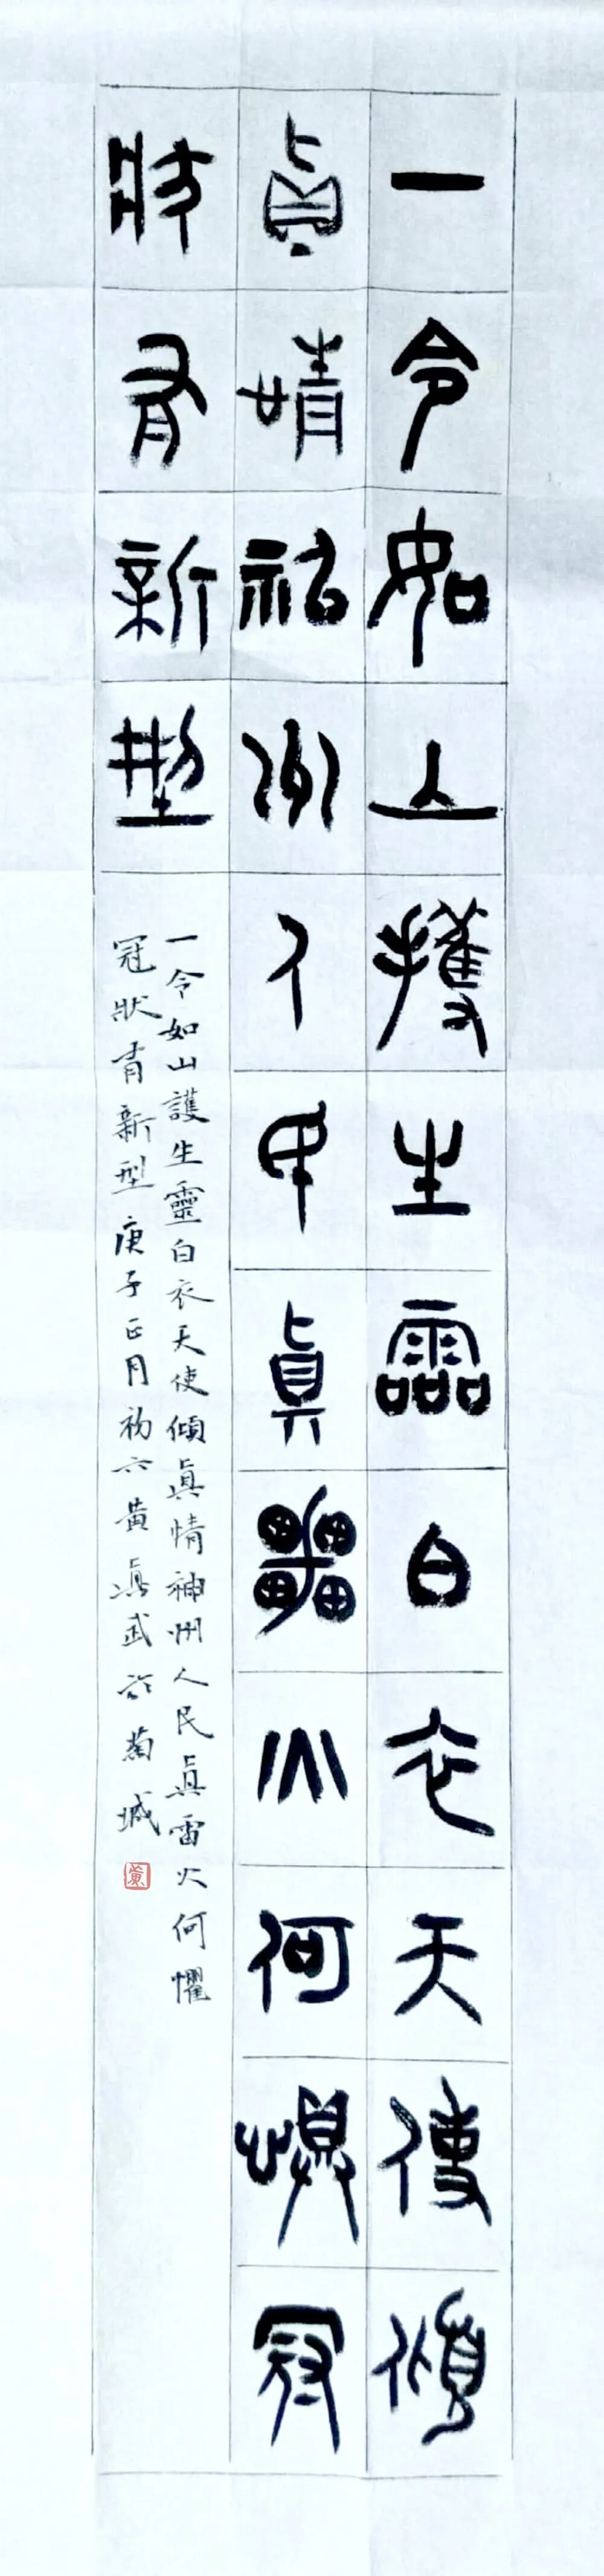 一令如山護生靈白衣天使傾
真情神州人民真雷火何懼冠
狀有新型
一令如山護生靈白衣天使傾真情神州人民真雷火何懼
冠狀有新型庚子正月初六黃真武於菊城
黃